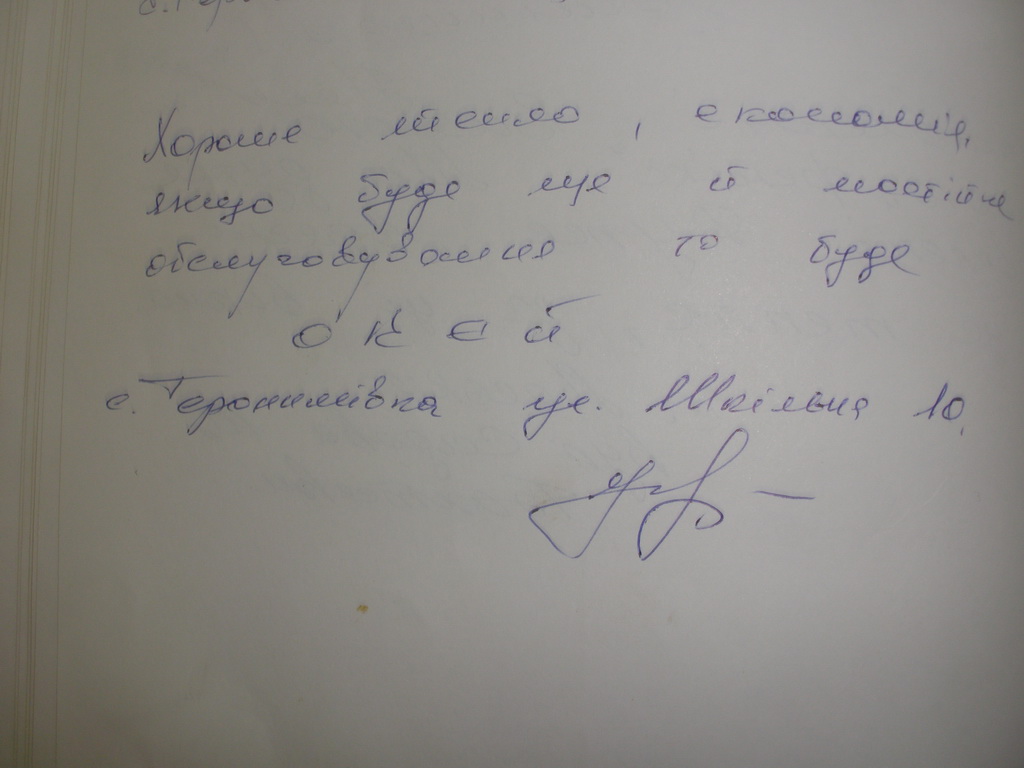 с. Гер
Хороше тепло, економія,
якщо буде ще й постійне
обслуговування то буде
о к є й
с. Геронимівка ул. Шкільна 10,